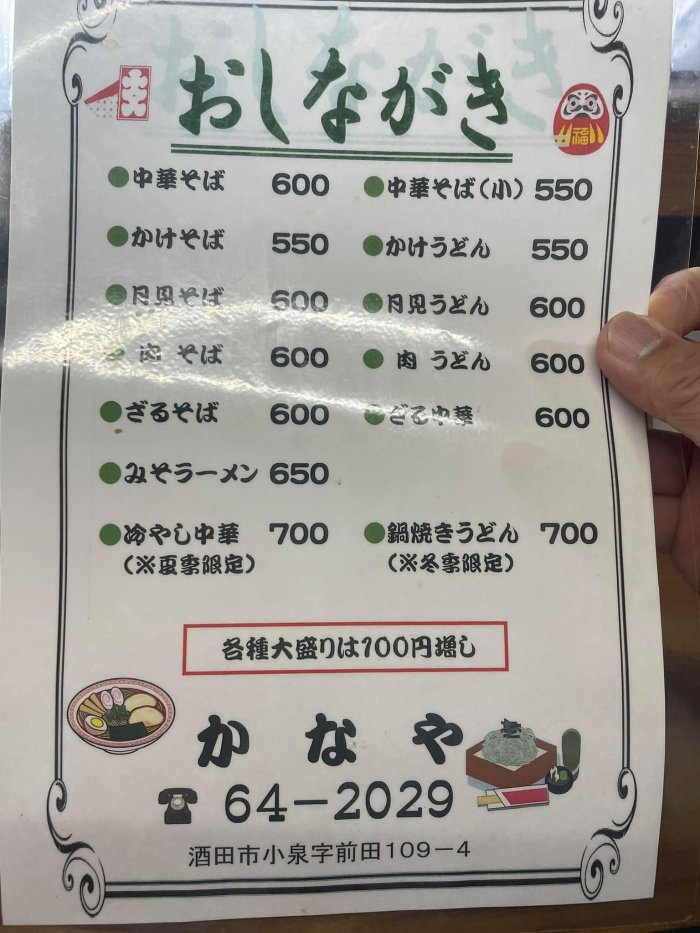 おしながき
福
中華そば 600 中華そば(小) 550
かけそば 550 かけうどん 550
月見そば 600 月見うどん 600
肉 そば 600 肉 うどん 600
ざるそば 600 ざる中華 600
みそラーメン 650
冷やし中華 700 鍋焼きうどん 700
(※夏季限定) (※冬季限定)
各種大盛りは100円増し
かなや
64-2029
酒田市小泉字前田109-4